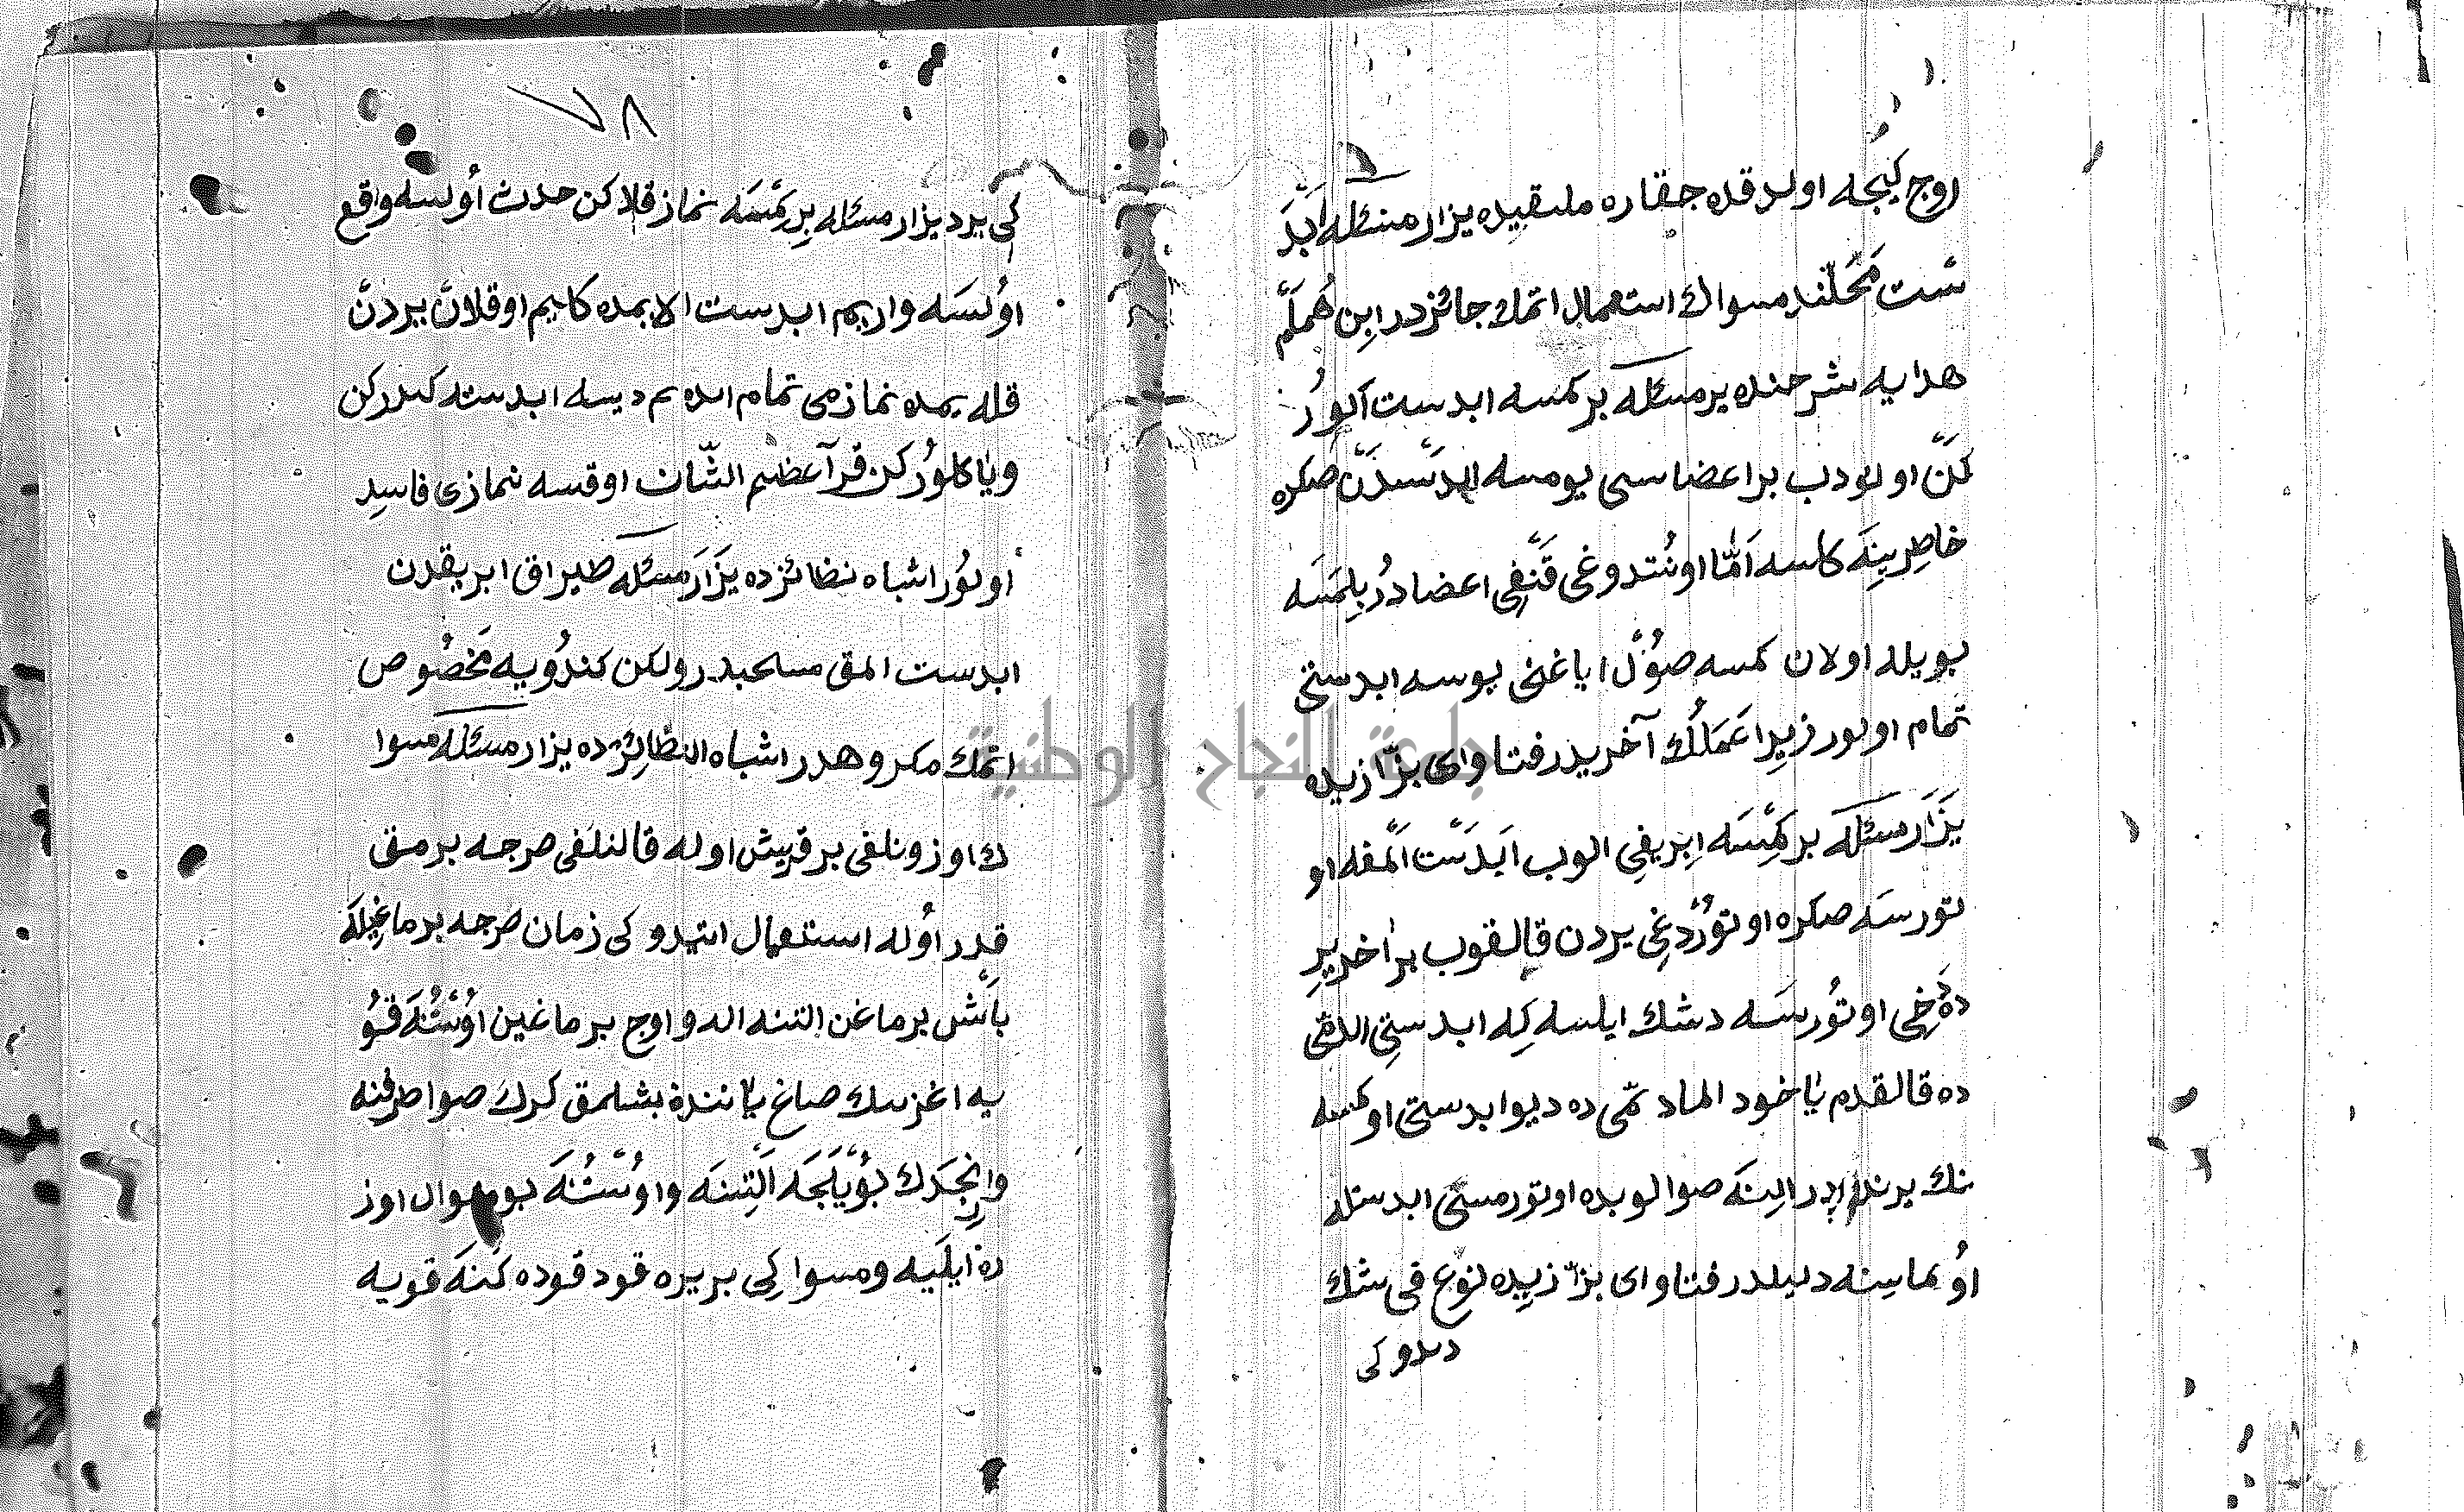 اوج كيجه اولدقده جقاره ملتقيده يزار مسئله ابد
ست محلنده مسواك استعمال اتمك جائزدر ابن همام
هدايه شرحنده ير مسئله بر كمسه ابدست آلور
كن اونودب بر اعضاسى يومسه ابدستدن صكره
خاطرينه كلسه اما اونتدوغى قنغى اعضادر بلمسه
بويله اولان كمسه صول اياغنى يوسه ابدستى
تمام اولور زيرا عملك آخريدر فتاواى بزازيده
يزار مسئله بر كمسه ابريغى الوب ابدست المغه او
تورسه صكره اوتوردغى يردن قالقوب بر اخر ير
ده دخى اوتورسه دشك ايلسه كه ابدستى الدقى
ده قالقدم ياخود المادمى ده ديو ابدستى او كمسه
نك ير الينه صو الوبده اوتورمسى ابدستله
اولماسنه دليلدر فتاواى بزازيده نوع فى شك
ديدوكى
٧٨
كى يرد يزار مسئله بر كمسه نماز قلاكن حدث اولسه واقع
اولسه واريم ابدست الايمده كليم اوقلان يردن
قله يمده نمازمى تمام ايده يم ديسه ابدسته كيدركن
ويا كلوركن قرآ عظيم الشان اوقسه نمازى فاسد
اولور اشباه نظائرده يزار مسئله طپراق ابريقدن
ابدست المق مستحبدر ولكن كندويه مخصوص
اتمك مكروهدر اشباه النظائرده يزار مسئله مسوا
ك اوزونلغى بر قريش اوله قالنلغى صرجه برمق
قدر اوله استعمال اتيدو كى زمان صرجه برماغيله
باش برماغن التنه اله و اوج برماغين اوستنه قو
يه اغزينك صاغ ياننده بشلمق كرك صوا طرفنه
وارنجدك بويلجه التنه و اوستنه بو منوال اوز
ره ايليه ومسواكى بر يره قودقوده كنه قويه